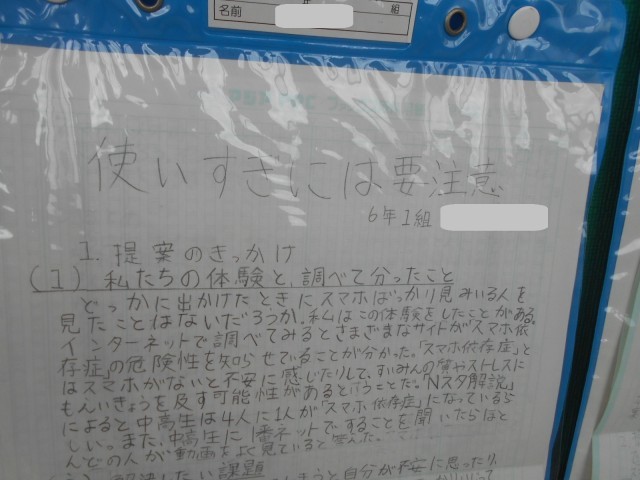 名前 年 組
使いすぎには要注意
6年1組
1. 提案のきっかけ
(1) 私たちの体験と、調べて分ったこと
どっかに出かけたときにスマホばっかり見みいる人を
見たことはないだろうか。私はこの体験をしたことがある。
インターネットで調べてみるとさまざまなサイトが「スマホ依
存症」の危険性を知らせていることが分かった。「スマホ依存症」と
はスマホがないと不安に感じたりして、すいみんの質やストレスに
もんいきょうを及す可能性があるということだ。「Nスタ解説」
によると中高生は4人に1人が「スマホ依存症」になっているら
しい。また、中高生に1番ネットですることを聞いたらほと
んどの人が動画をよく見ていると答えた。
解決したい課題
しまうと自分が不安に思ったり、